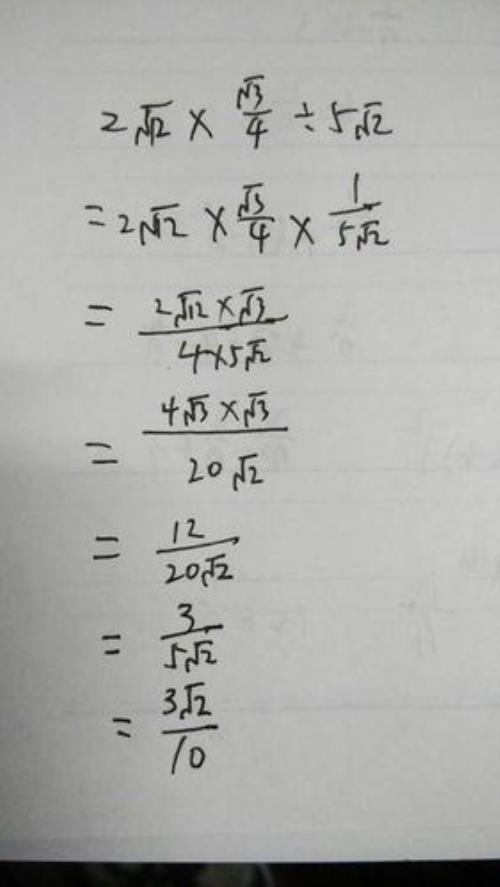 2√12 × √3/4 ÷ 5√2
= 2√12 × √3/4 × 1/5√2
= 2√12 × √3 / 4×5√2
= 4√3 × √3 / 20√2
= 12 / 20√2
= 3 / 5√2
= 3√2 / 10